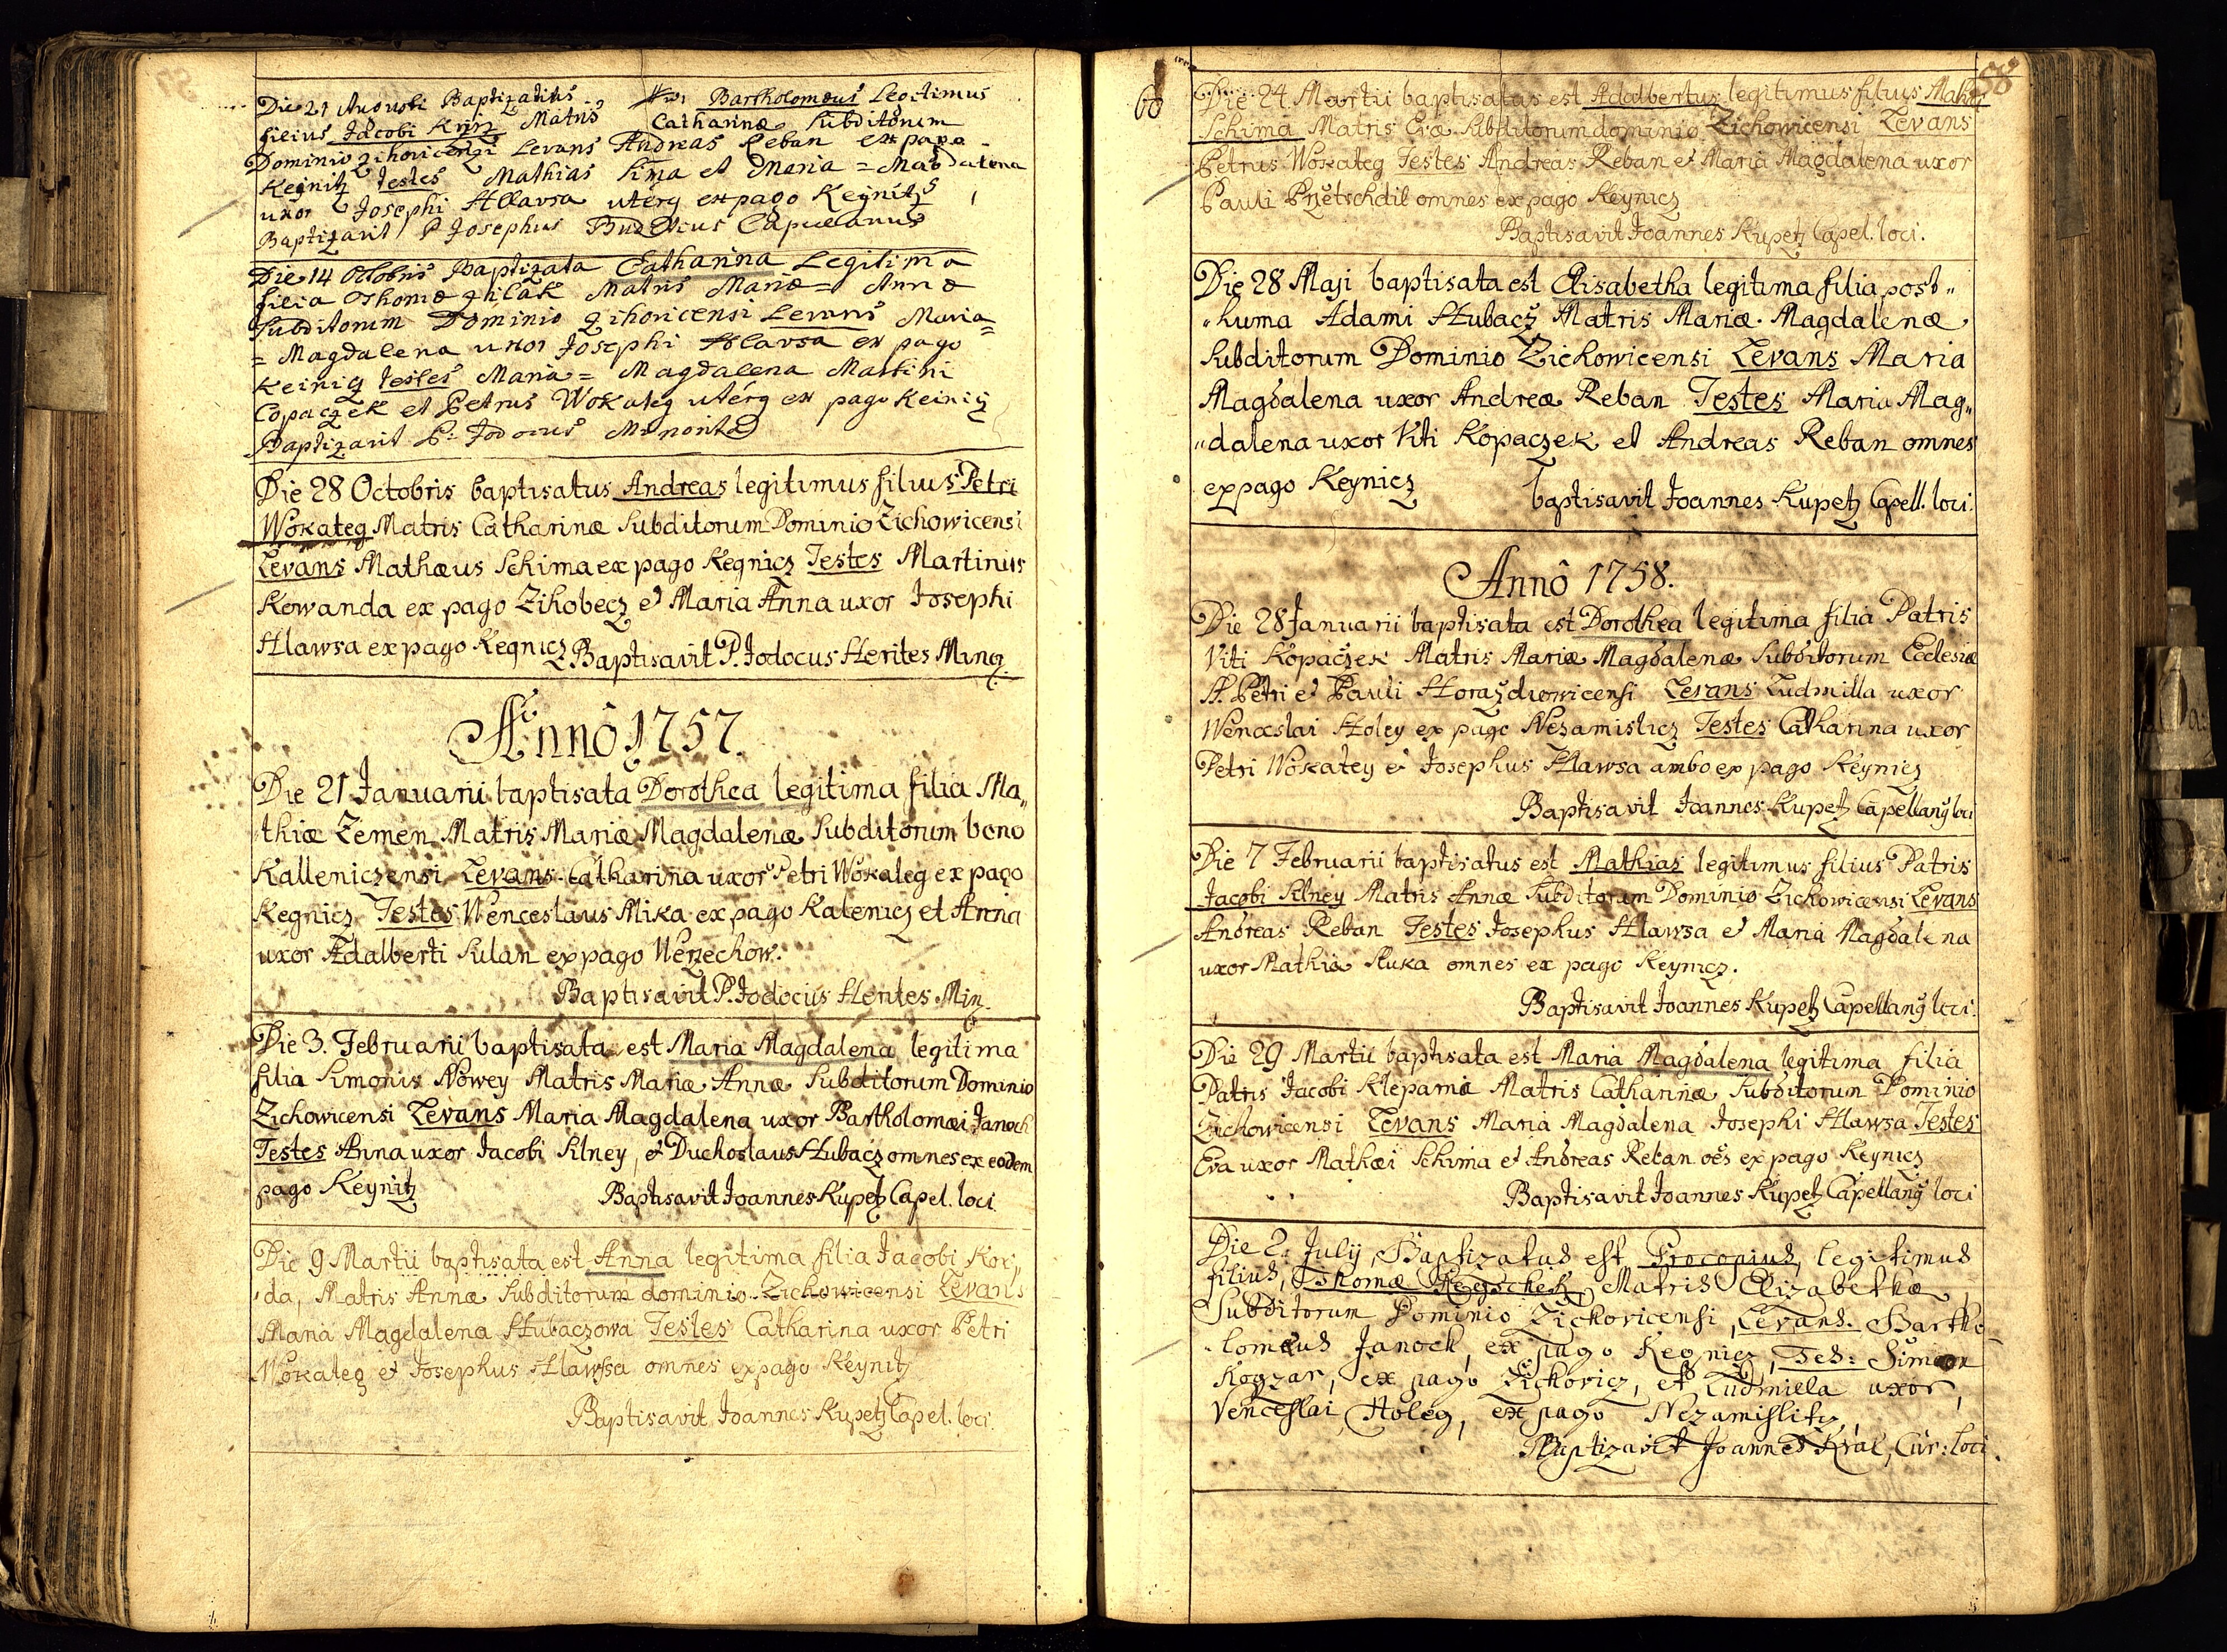 Die 21 Augusti Baptizatus Bartholomæus Legitimus
filius Jacobi Krziz Matris Catharinæ Subditorum
Dominio Zihovicensi Levans Andreas Reban ex pago
Kegnitz Testes Mathias Sima et Maria = Magdalena
uxor Josephi Hlavsa uterq ex pago Kegnitz
Baptizavit P Josephus Capellanus
Die 14 Octobris Baptizata Catharina Legitima
filia Thomæ Matris Mariæ = Annæ
Subditorum Dominio Zihovicensi Levans Maria =
= Magdalena uxor Josephi Hlavsa ex pago
Keinicz Testes Maria = Magdalena Martini
Copaczek et Petrus Wokateg uterq ex pago Keinicz
Baptizavit P: Jodocus Minorita
Die 28 Octobris baptisatus Andreas legitimus filius Petri
Wokateg Matris Catharinæ Subditorum Dominio Zichowicensi
Levans Mathæus Schima ex pago Kegnicz Testes Martinus
Kowanda ex pago Zihobecz et Maria Anna uxor Josephi
Hlawsa ex pago Kegnicz Baptisavit P. Jodocus Herites Minq.
Annô 1757.
Die 21 Januarii baptisata Dorothea legitima filia Ma„
thiæ Zemen Matris Mariæ Magdalenæ Subditorum bono
Kalleniczensi Levans Catharina uxor Petri Wokateg ex pago
Kegnicz Testes Wenceslaus Mika ex pago Kalenicz et Anna
uxor Adalberti Sulan ex pago Werzechow.
Baptisavit P. Jodocus Herites Min.
Die 3. Februarii baptisata est Maria Magdalena legitima
filia Simonis Nowey Matris Mariæ Annæ Subditorum Dominio
Zichowicensi Levans Maria Magdalena uxor Bartholomæi Janoch
Testes Anna uxor Jacobi Silney, et Duchoslaus Hubacz omnes ex eodem
pago Keynitz Baptisavit Joannes Kupetz Capel. loci
Die 9 Martii baptisata est Anna legitima filia Jacobi Kor„
„da, Matris Annæ Subditorum dominio Zichowicensi Levans
Maria Magdalena Hubaczowa Testes Catharina uxor Petri
Wokateg et Josephus Hlawsa omnes ex pago Keynitz
Baptisavit Joannes Kupetz Capel. loci.
60
58
Die 24 Martii baptisatus est Adalbertus legitimus filius Mathæi
Schima Matris Evæ Subditorum dominio Zichowicensi Levans
Petrus Wokateg Testes Andreas Reban et Maria Magdalena uxor
Pauli Przetschdil omnes ex pago Keynicz
Baptisavit Joannes Kupetz Capel. loci.
Die 28 Maji baptisata est Elisabetha legitima filia post„
„huma Adami Hubacz Matris Mariæ Magdalenæ
Subditorum Dominio Zichowicensi Levans Maria
Magdalena uxor Andreæ Reban Testes Maria Mag„
„dalena uxor Viti Kopaczek et Andreas Reban omnes
ex pago Keynicz baptisavit Joannes Kupetz Capell. loci.
Annô 1758.
Die 28 Januarii baptisata est Dorothea legitima filia Patris
Viti Kopaczek Matris Mariæ Magdalenæ Subditorum Ecclesiæ
S. Petri et Pauli Horazdiowicensi Levans Ludmilla uxor
Wenceslai Holey ex pago Nezamislicz Testes Catharina uxor
Petri Wokatey et Josephus Hlawsa ambo ex pago Keynicz
Baptisavit Joannes Kupetz Capellanq loci
Die 7 Februarii baptisatus est Mathias legitimus filius Patris
Jacobi Silney Matris Annæ Subditorum Dominio Zichowicensi Levans
Andreas Reban Testes Josephus Hlawsa et Maria Magdalena
uxor Mathiæ Sluka omnes ex pago Keynicz.
Baptisavit Joannes Kupetz Capellanq loci.
Die 29 Martii baptisata est Maria Magdalena legitima filia
Patris Jacobi Klepama Matris Catharinæ Subditorum Dominio
Zichowicensi Levans Maria Magdalena Josephi Hlawsa Testes
Eva uxor Mathæi Schima et Andreas Reban oes ex pago Keynicz
Baptisavit Joannes Kupetz Capellanq loci
Die 2. Julij Baptizatus est Procopius, legitimus
filius, Thomæ Matris Elizabethæ,
Subditorum Dominio Zichovicensi, Levans. Bartho-
lomeus Janoch, ex pago Kegnicz, Tes: Simeon
Kogzar, ex pago Zichovicz, et Ludmilla uxor,
Venceslai Holeg, ex pago Nezamislitz,
Baptizavit Joannes Kral, Cur: loci.